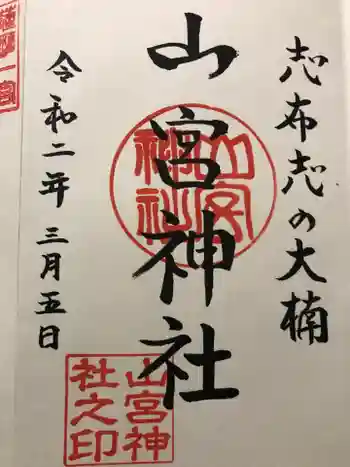 志布志の大楠
山宮神社
山宮神社
山宮神社之印
令和二年三月五日